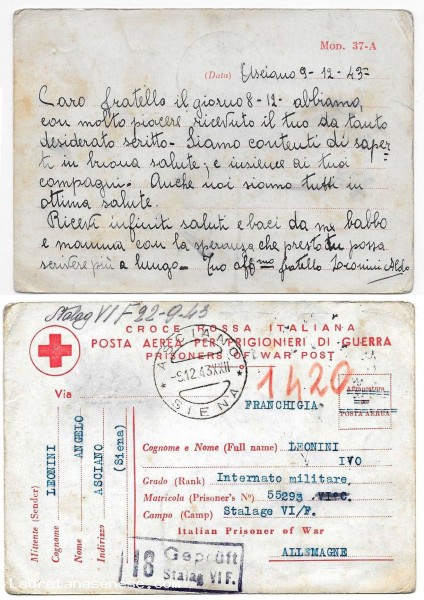 Mod. 37-A
(Data) Asciano 9-12-43-
Caro fratello il giorno 8-12- abbiamo,
con molto piacere ricevuto il tuo da tanto
desiderato scritto- Siamo contenti di saper
ti in buona salute; e insieme ai tuoi
compagni. Anche noi siamo tutti in
ottima salute.
Ricevi infiniti saluti e baci da me babbo
e mamma con la speranza che presto tu possa
scrivere più a lungo- Tuo aff.mo fratello Leonini Aldo
Stalag VI F 22-9-43
CROCE ROSSA ITALIANA
POSTA AEREA PER PRIGIONIERI DI GUERRA
PRISONERS OF WAR POST
ASCIANO
-9.12.43XXII
SIENA
1420
Via
FRANCHIGIA
POSTA AEREA
Mittente (Sender)
Cognome LEONINI
Nome ANGELO
Indirizzo ASCIANO
(Siena)
Cognome e Nome (Full name) LEONINI
IVO
Grado (Rank) Internato militare,
Matricola (Prisoner's No) 55293
Campo (Camp) Stalage VI/F.
Italian Prisoner of War
ALLEMAGNE
18 Geprüft
Stalag VI F.